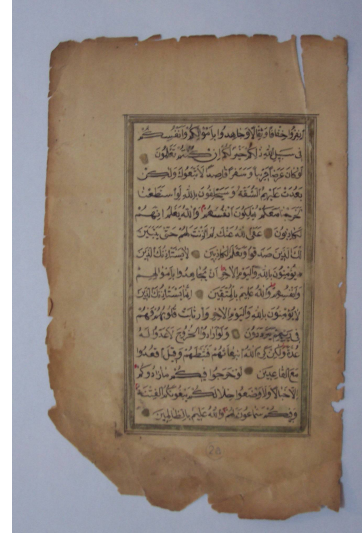 انفروا خفافا وثقالا وجاهدوا باموالكم وانفسكم
في سبيل الله ذلكم خير لكم ان كنتم تعلمون
لو كان عرضا قريبا وسفرا قاصدا لاتبعوك ولكن
بعدت عليهم الشقة وسيحلفون بالله لو استطعنا
لخرجنا معكم يهلكون انفسهم والله يعلم انهم
لكاذبون عفى الله عنك لم اذنت لهم حتى يتبين
لك الذين صدقوا وتعلم الكاذبين لا يستاذنك الذين
يؤمنون بالله واليوم الاخر ان يجاهدوا باموالهم
وانفسهم والله عليم بالمتقين انما يستاذنك الذين
لا يؤمنون بالله واليوم الاخر وارتابت قلوبهم فهم
في ريبهم يترددون ولو ارادوا الخروج لاعدوا له
عدة ولكن كره الله انبعاثهم فثبطهم وقيل اقعدوا
مع القاعدين لو خرجوا فيكم ما زادوكم
الا خبالا ولاوضعوا خلالكم يبغونكم الفتنة
وفيكم سماعون لهم والله عليم بالظالمين